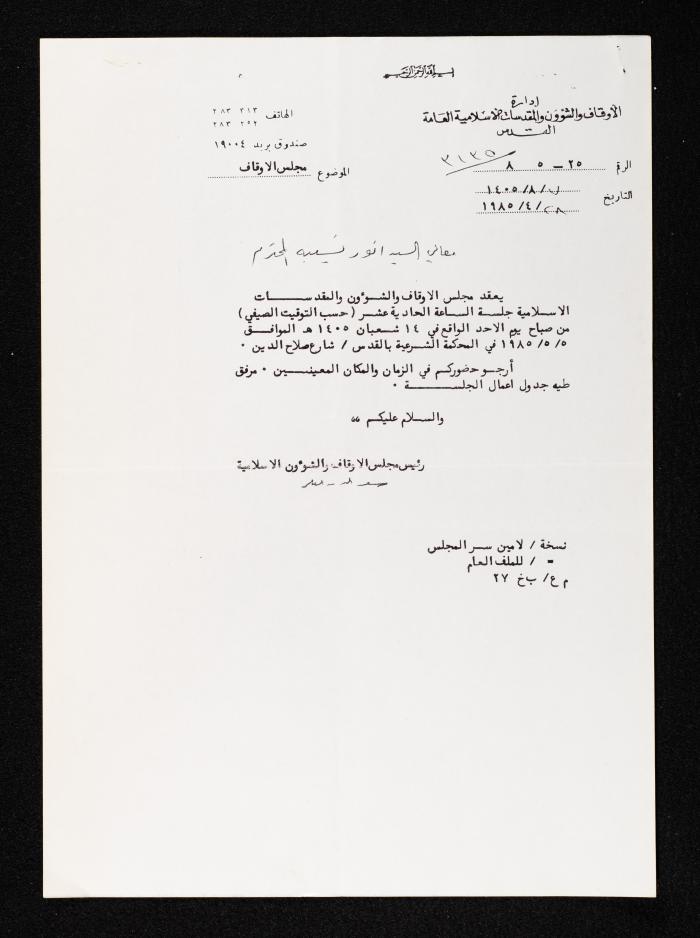 بسم الله الرحمن الرحيم
إدارة
الأوقاف والشؤون والمقدسات الإسلامية العامة
القدس
الهاتف ٢٨٣ ٣١٣
٢٨٣ ٢٥٢
صندوق بريد ١٩٠٠٤
الموضوع مجلس الاوقاف
الرقم ٢٥ - ٥ ٨
٣١٣٥
التاريخ ١٤٠٥/٨/٧
١٩٨٥/٤/٢٨
معالي السيد انور نسيبه المحترم
يعقد مجلس الاوقاف والشؤون والمقدسات
الاسلامية جلسة الساعة الحادية عشر (حسب التوقيت الصيفي)
من صباح يوم الاحد الواقع في ١٤ شعبان ١٤٠٥ هـ الموافق
١٩٨٥/٥/٥ في المحكمة الشرعية بالقدس / شارع صلاح الدين ٠
أرجو حضوركم في الزمان والمكان المعينين ٠ مرفق
طيه جدول اعمال الجلسة ٠
والسلام عليكم ،،
رئيس مجلس الاوقاف والشؤون الاسلامية
نسخة / لامين سر المجلس
= / للملف العام
م ع / ب خ ٢٧